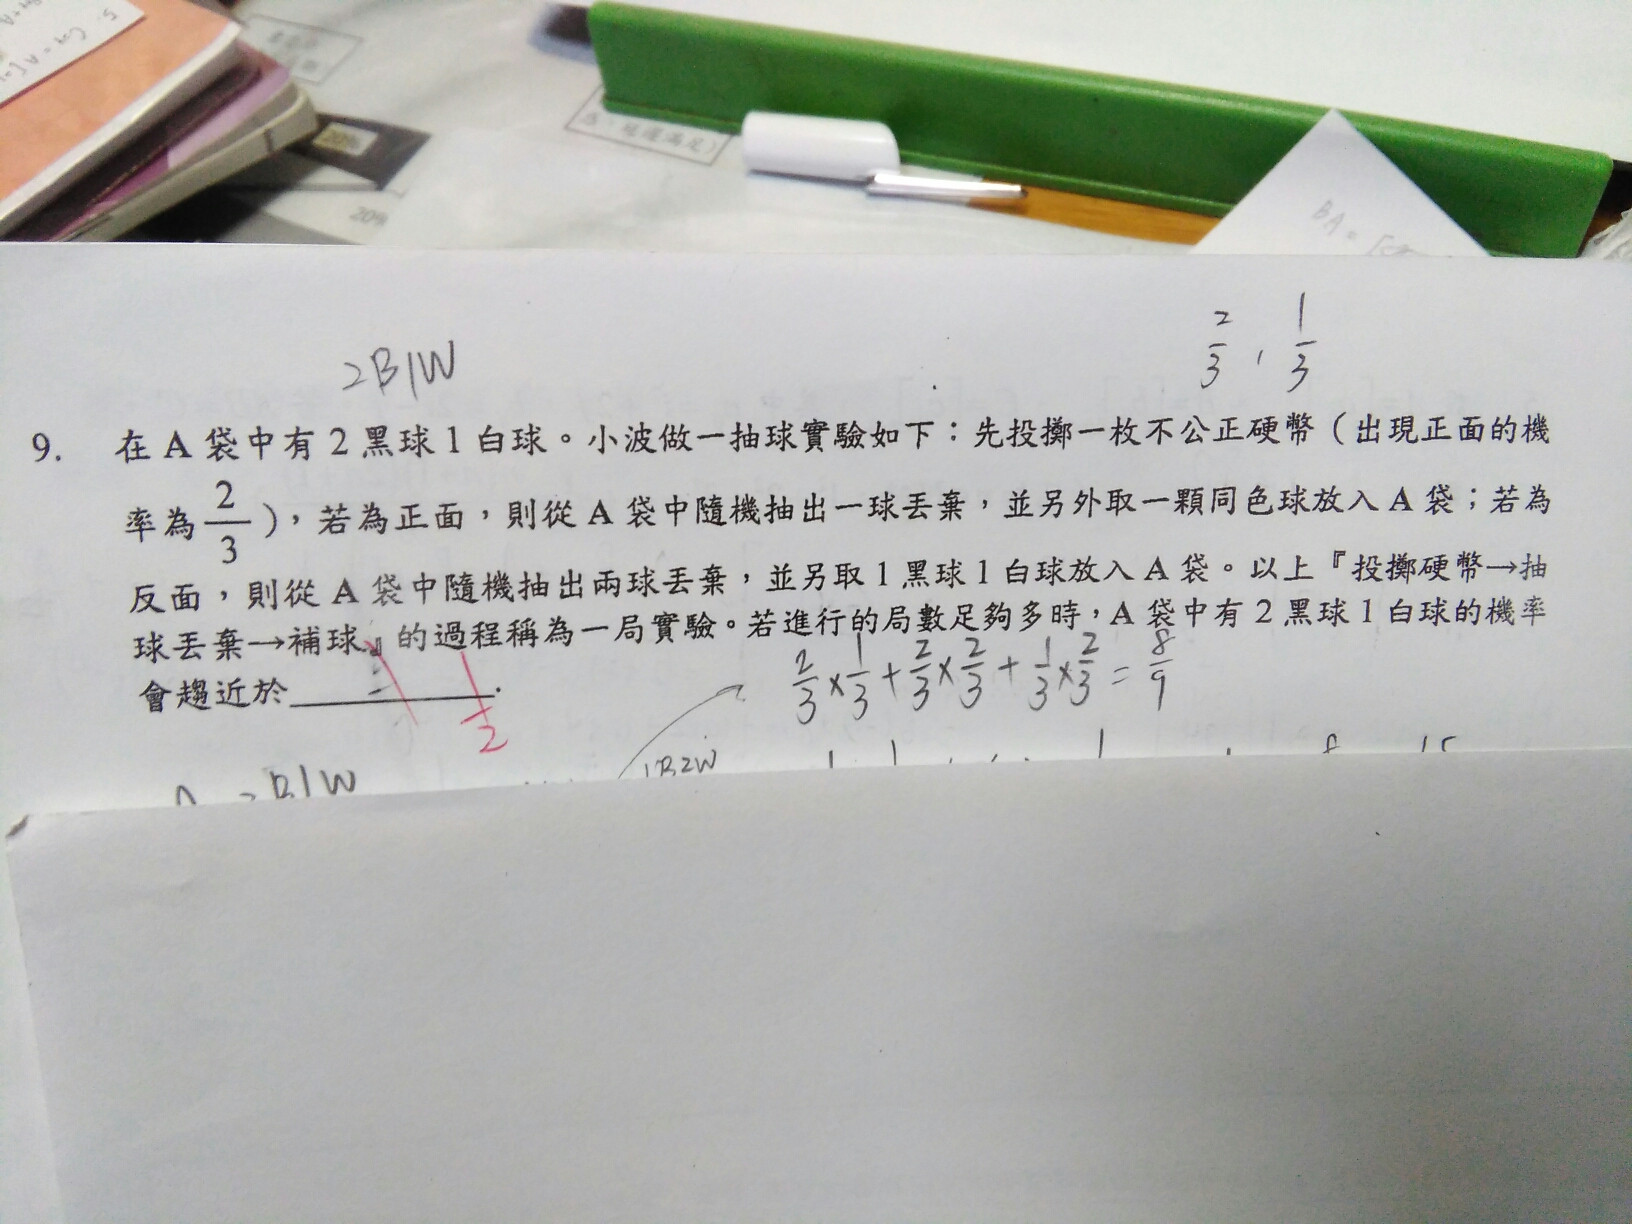 20%
BA =
2/3 , 1/3
2B1W
9. 在 A 袋中有 2 黑球 1 白球。小波做一抽球實驗如下：先投擲一枚不公正硬幣（出現正面的機
率為 2/3 ），若為正面，則從 A 袋中隨機抽出一球丟棄，並另外取一顆同色球放入 A 袋；若為
反面，則從 A 袋中隨機抽出兩球丟棄，並另取 1 黑球 1 白球放入 A 袋。以上『投擲硬幣→抽
球丟棄→補球』的過程稱為一局實驗。若進行的局數足夠多時，A 袋中有 2 黑球 1 白球的機率
會趨近於________.
2/3 × 1/3 + 2/3 × 2/3 + 1/3 × 2/3 = 8/9
1/2
2B1W
1B2W